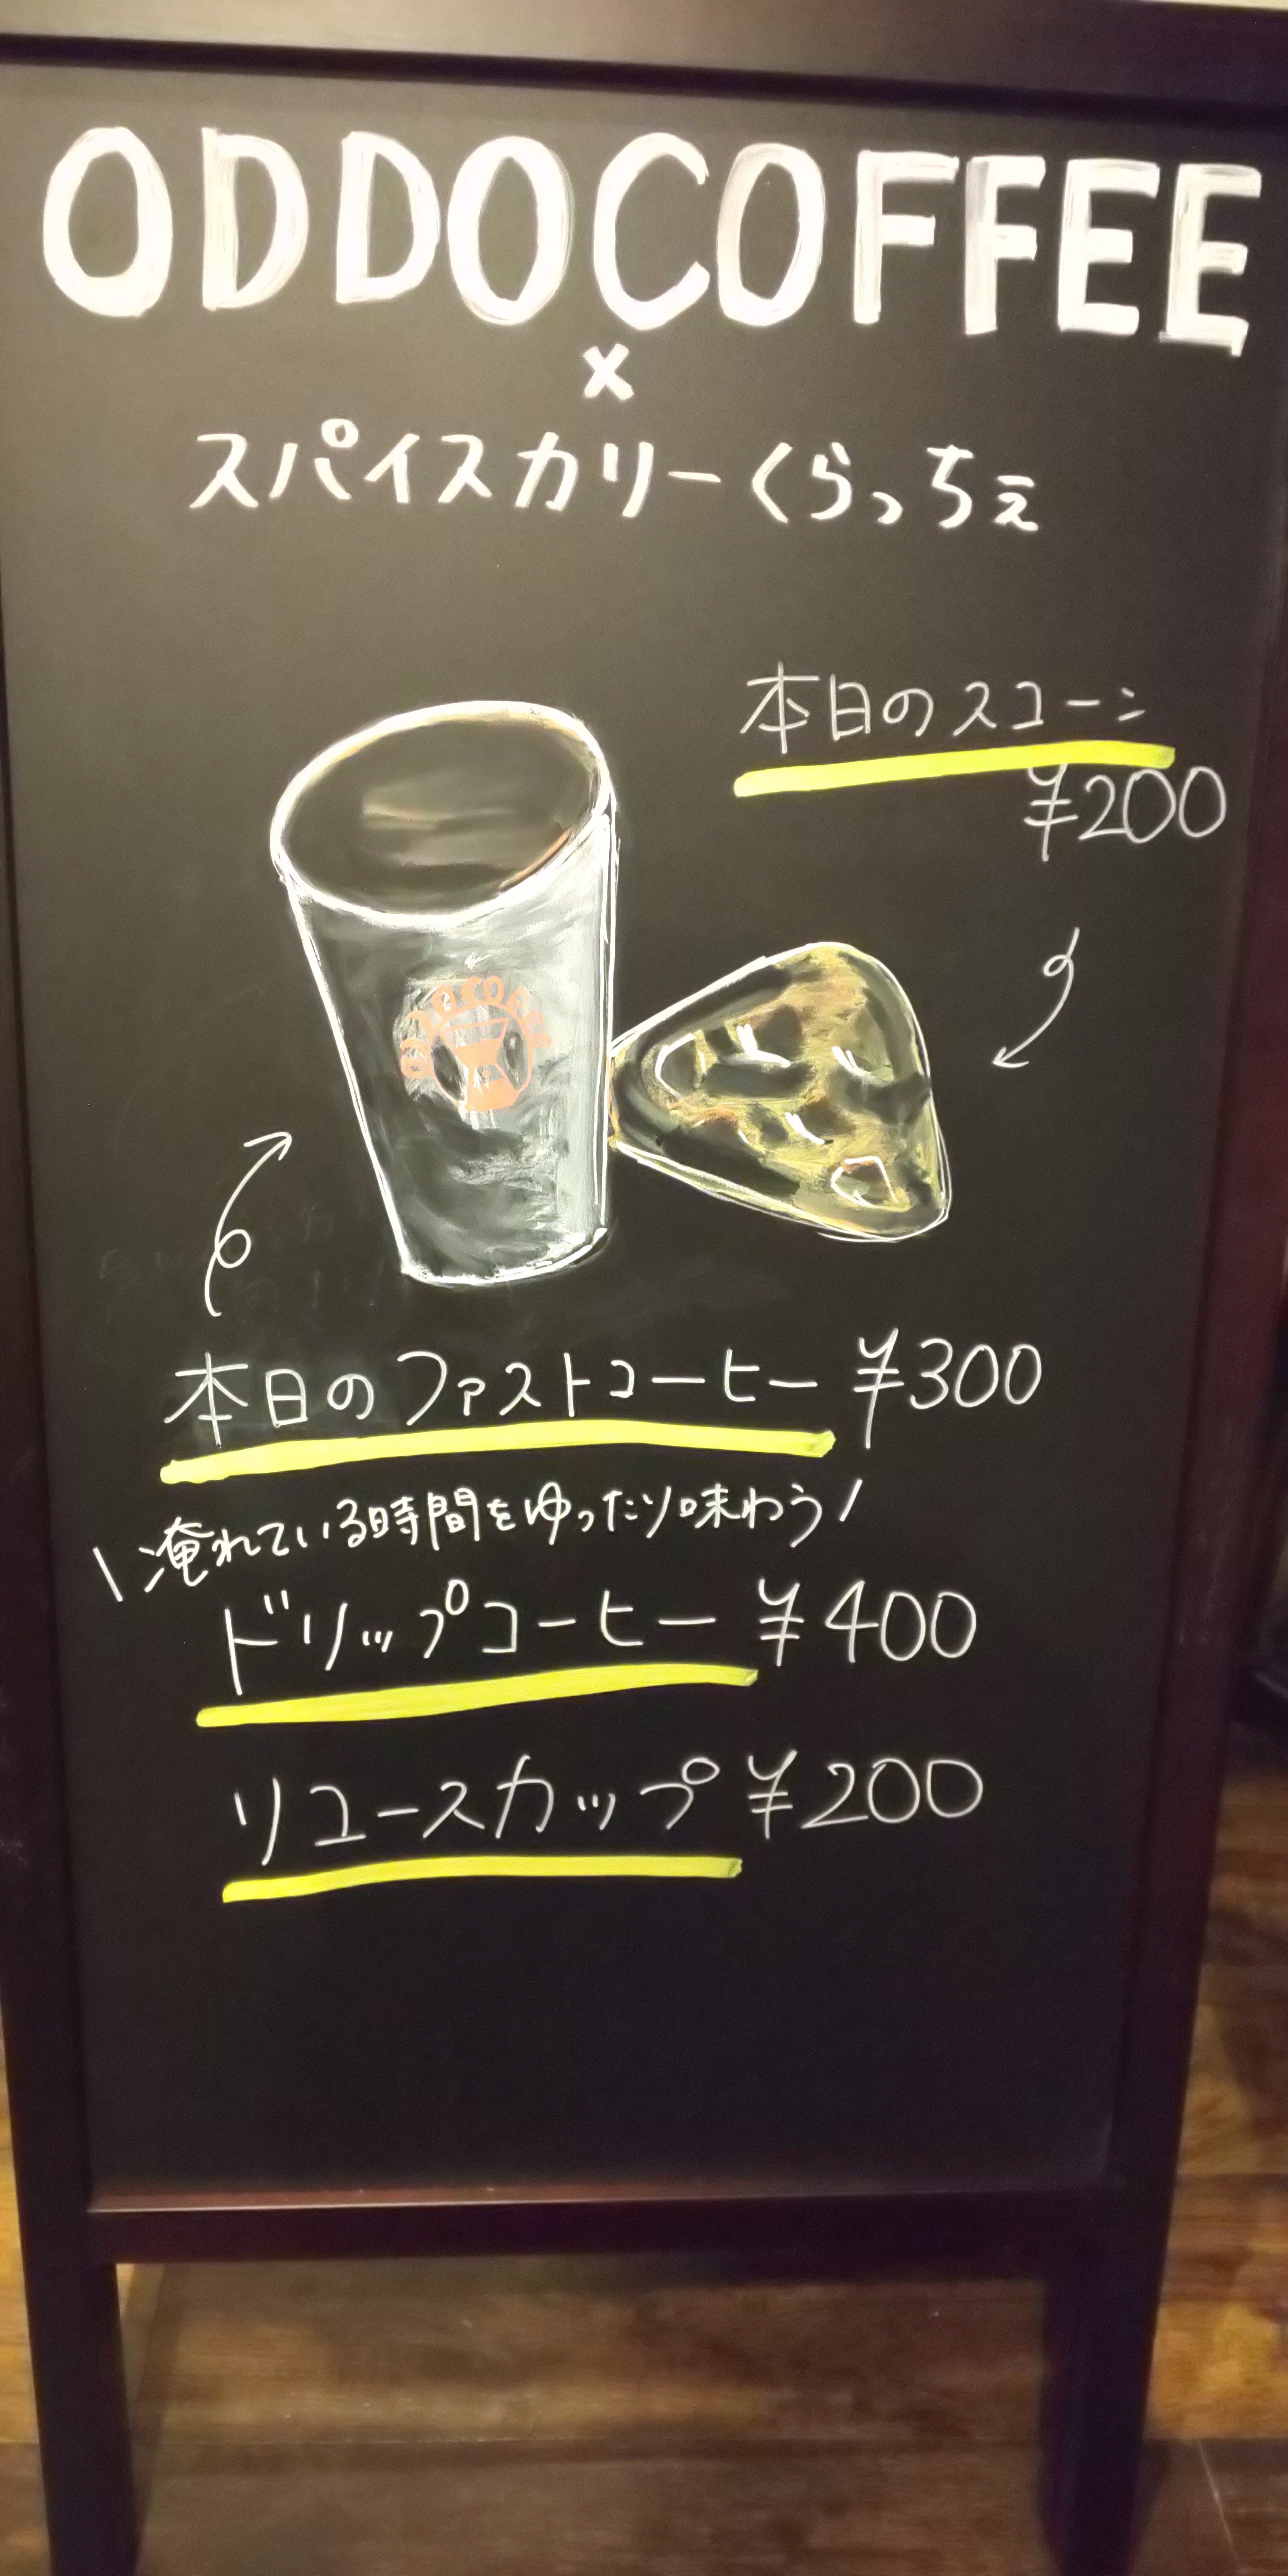 ODDOCOFFEE
×
スパイスカリーくらっちぇ
本日のスコーン
¥200
本日のファストコーヒー ¥300
\淹れている時間をゆったり味わう/
ドリップコーヒー ¥400
リユースカップ ¥200